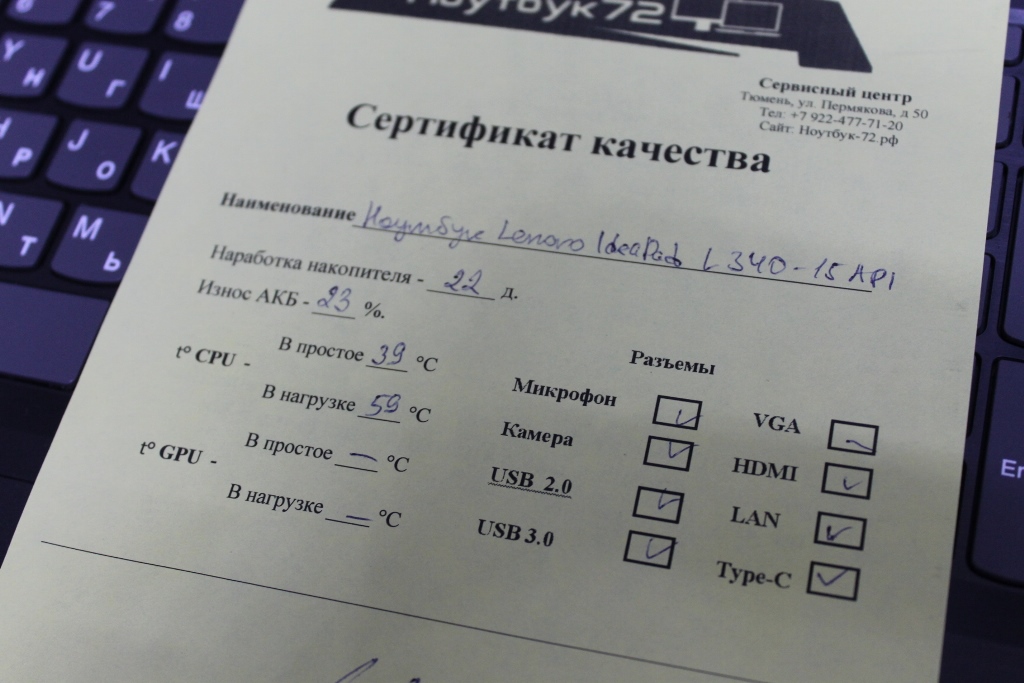 Ноутбук72
Сервисный центр
Тюмень, ул. Пермякова, д 50
Тел: +7 922-477-71-20
Сайт: Ноутбук-72.рф
Сертификат качества
Наименование Ноутбук Lenovo IdeaPad L340-15API
Наработка накопителя - 22 д.
Износ АКБ - 23 %.
t° CPU - В простое 39 °C
В нагрузке 59 °C
t° GPU - В простое — °C
В нагрузке — °C
Разъемы
Микрофон VGA
Камера HDMI
USB 2.0 LAN
USB 3.0 Type-C
6 7 8
Y Н U Г I Ш
Р J О K
N Т M Ь
En